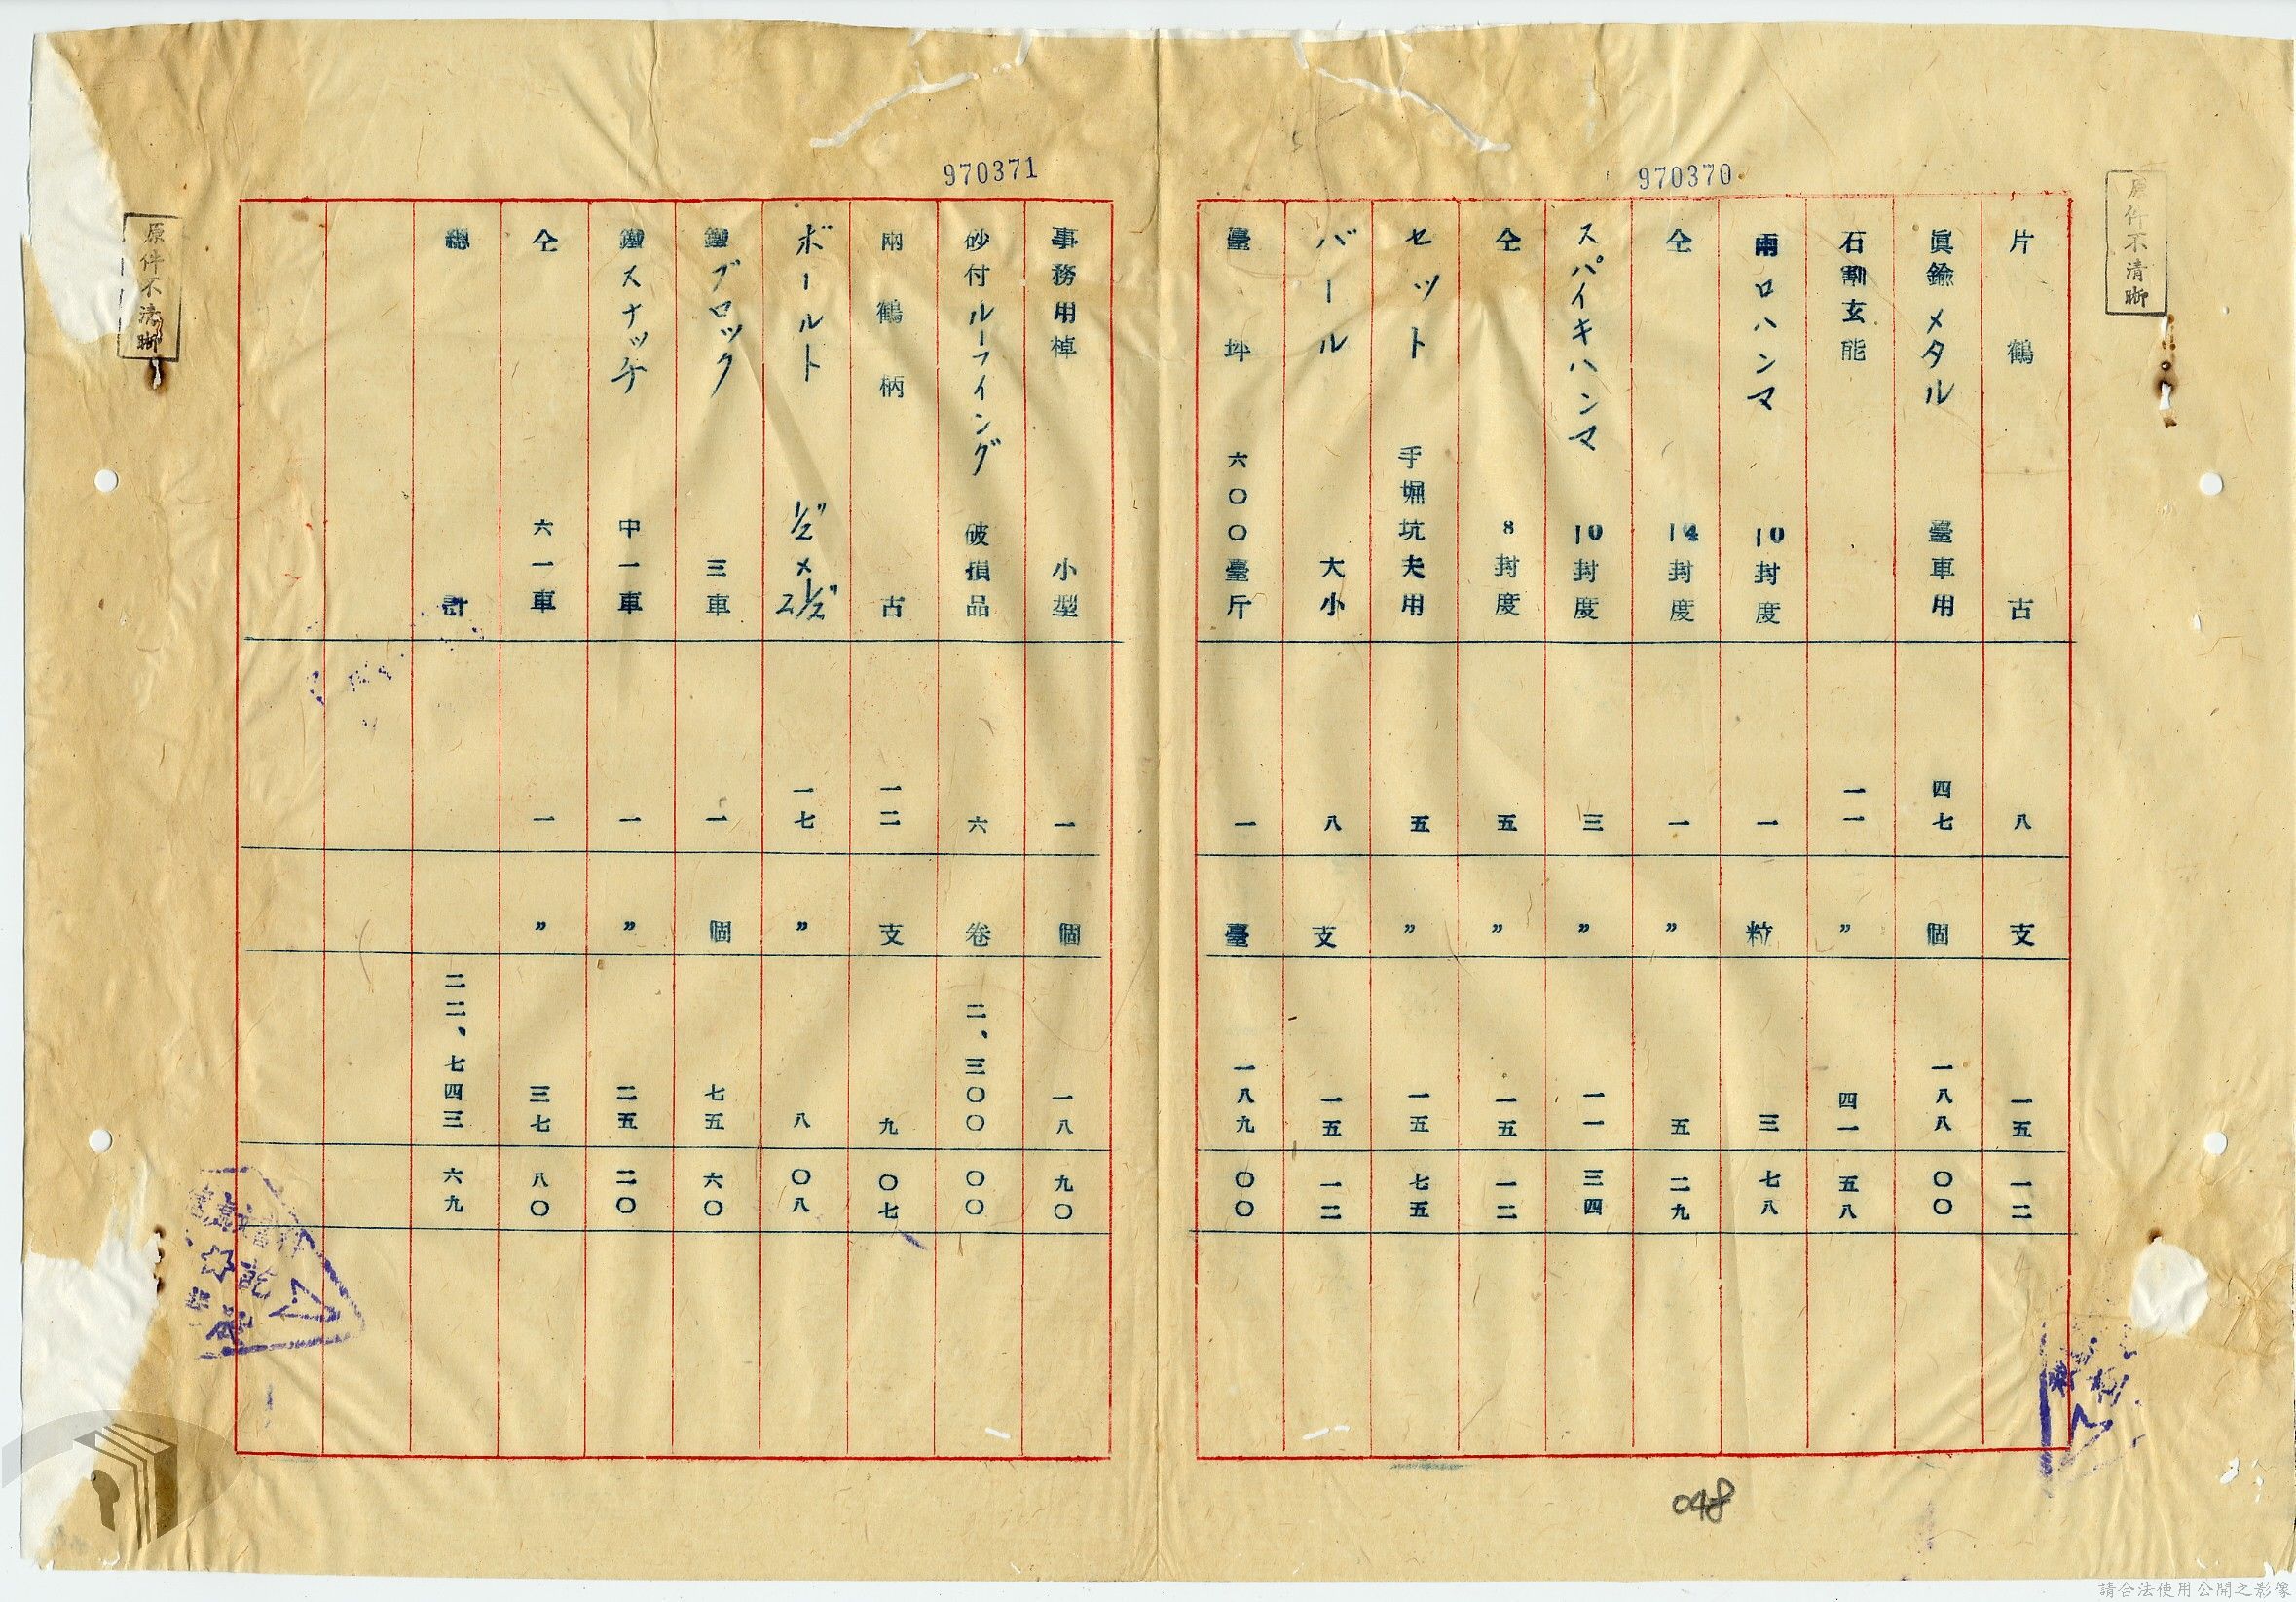 970370
原件不清晰
片鶴 古 八 支 一五 一二
眞鍮メタル 臺車用 四七 個 一八八 〇〇
石割玄能 一一 〃 四一 五八
兩口ハンマ 10封度 一 粒 三 七八
仝 14封度 一 〃 五 二九
スパイキハンマ 10封度 三 〃 一一 三四
仝 8封度 五 〃 一五 一二
セット 手堀坑夫用 五 〃 一五 七五
バール 大小 八 支 一五 一二
臺坪 六〇〇臺斤 一 臺 一八九 〇〇
048
970371
事務用棹 小型 一 個 一八 九〇
砂付ルーフイング 破損品 六 卷 二、三〇〇 〇〇
兩鶴柄 古 一二 支 九 〇七
ボールト 1/2"×2 1/2" 一七 〃 八 〇八
鐵ブロック 三車 一 個 七五 六〇
鐵スナッケ 中一車 一 〃 二五 二〇
仝 六一車 一 〃 三七 八〇
總計 二二、七四三 六九
原件不清晰
請合法使用公開之影像